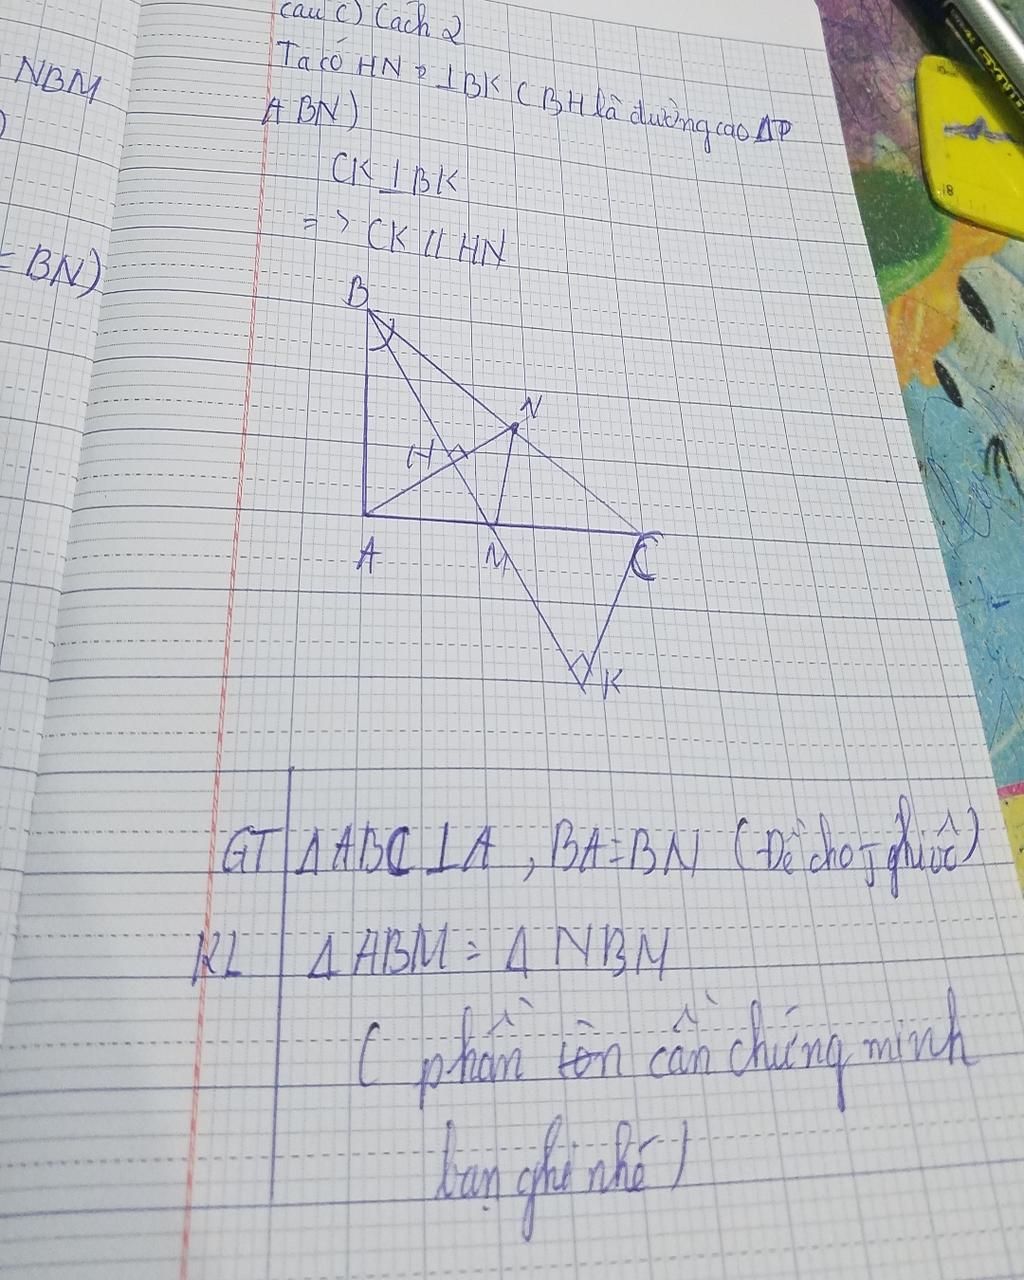 NBM
= BN)
câu c) Cách 2
Ta có HN ⊥ BK ( BH là đường cao Δ
ABN)
CK ⊥ BK
=> CK // HN
B
N
H
A
M
C
K
GT ΔABC ⊥ A , BA = BN (Đề cho
KL Δ ABM = Δ NBM
( phần cần chứng minh
bạn ghi nhé )